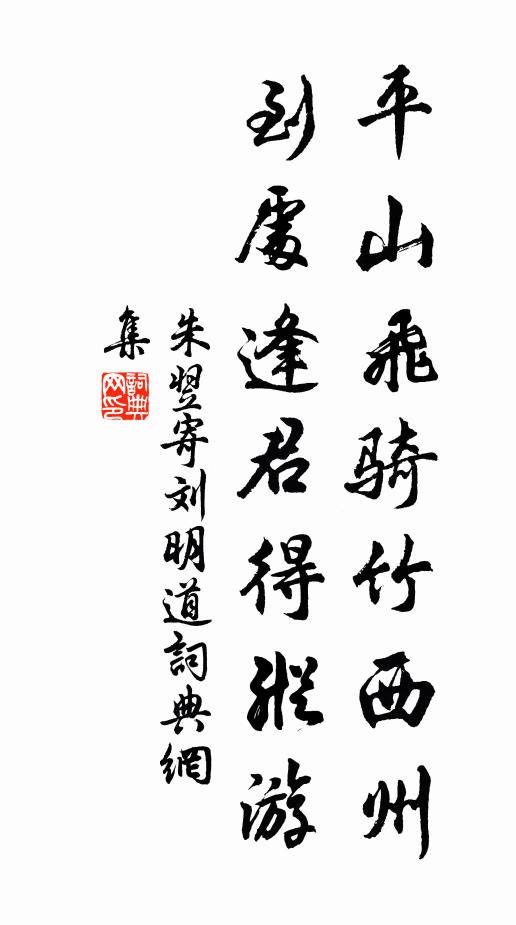 平山飛騎竹西州
到處逢君得縱游
朱翌寄刘明道詞典網
集
詞典
网印